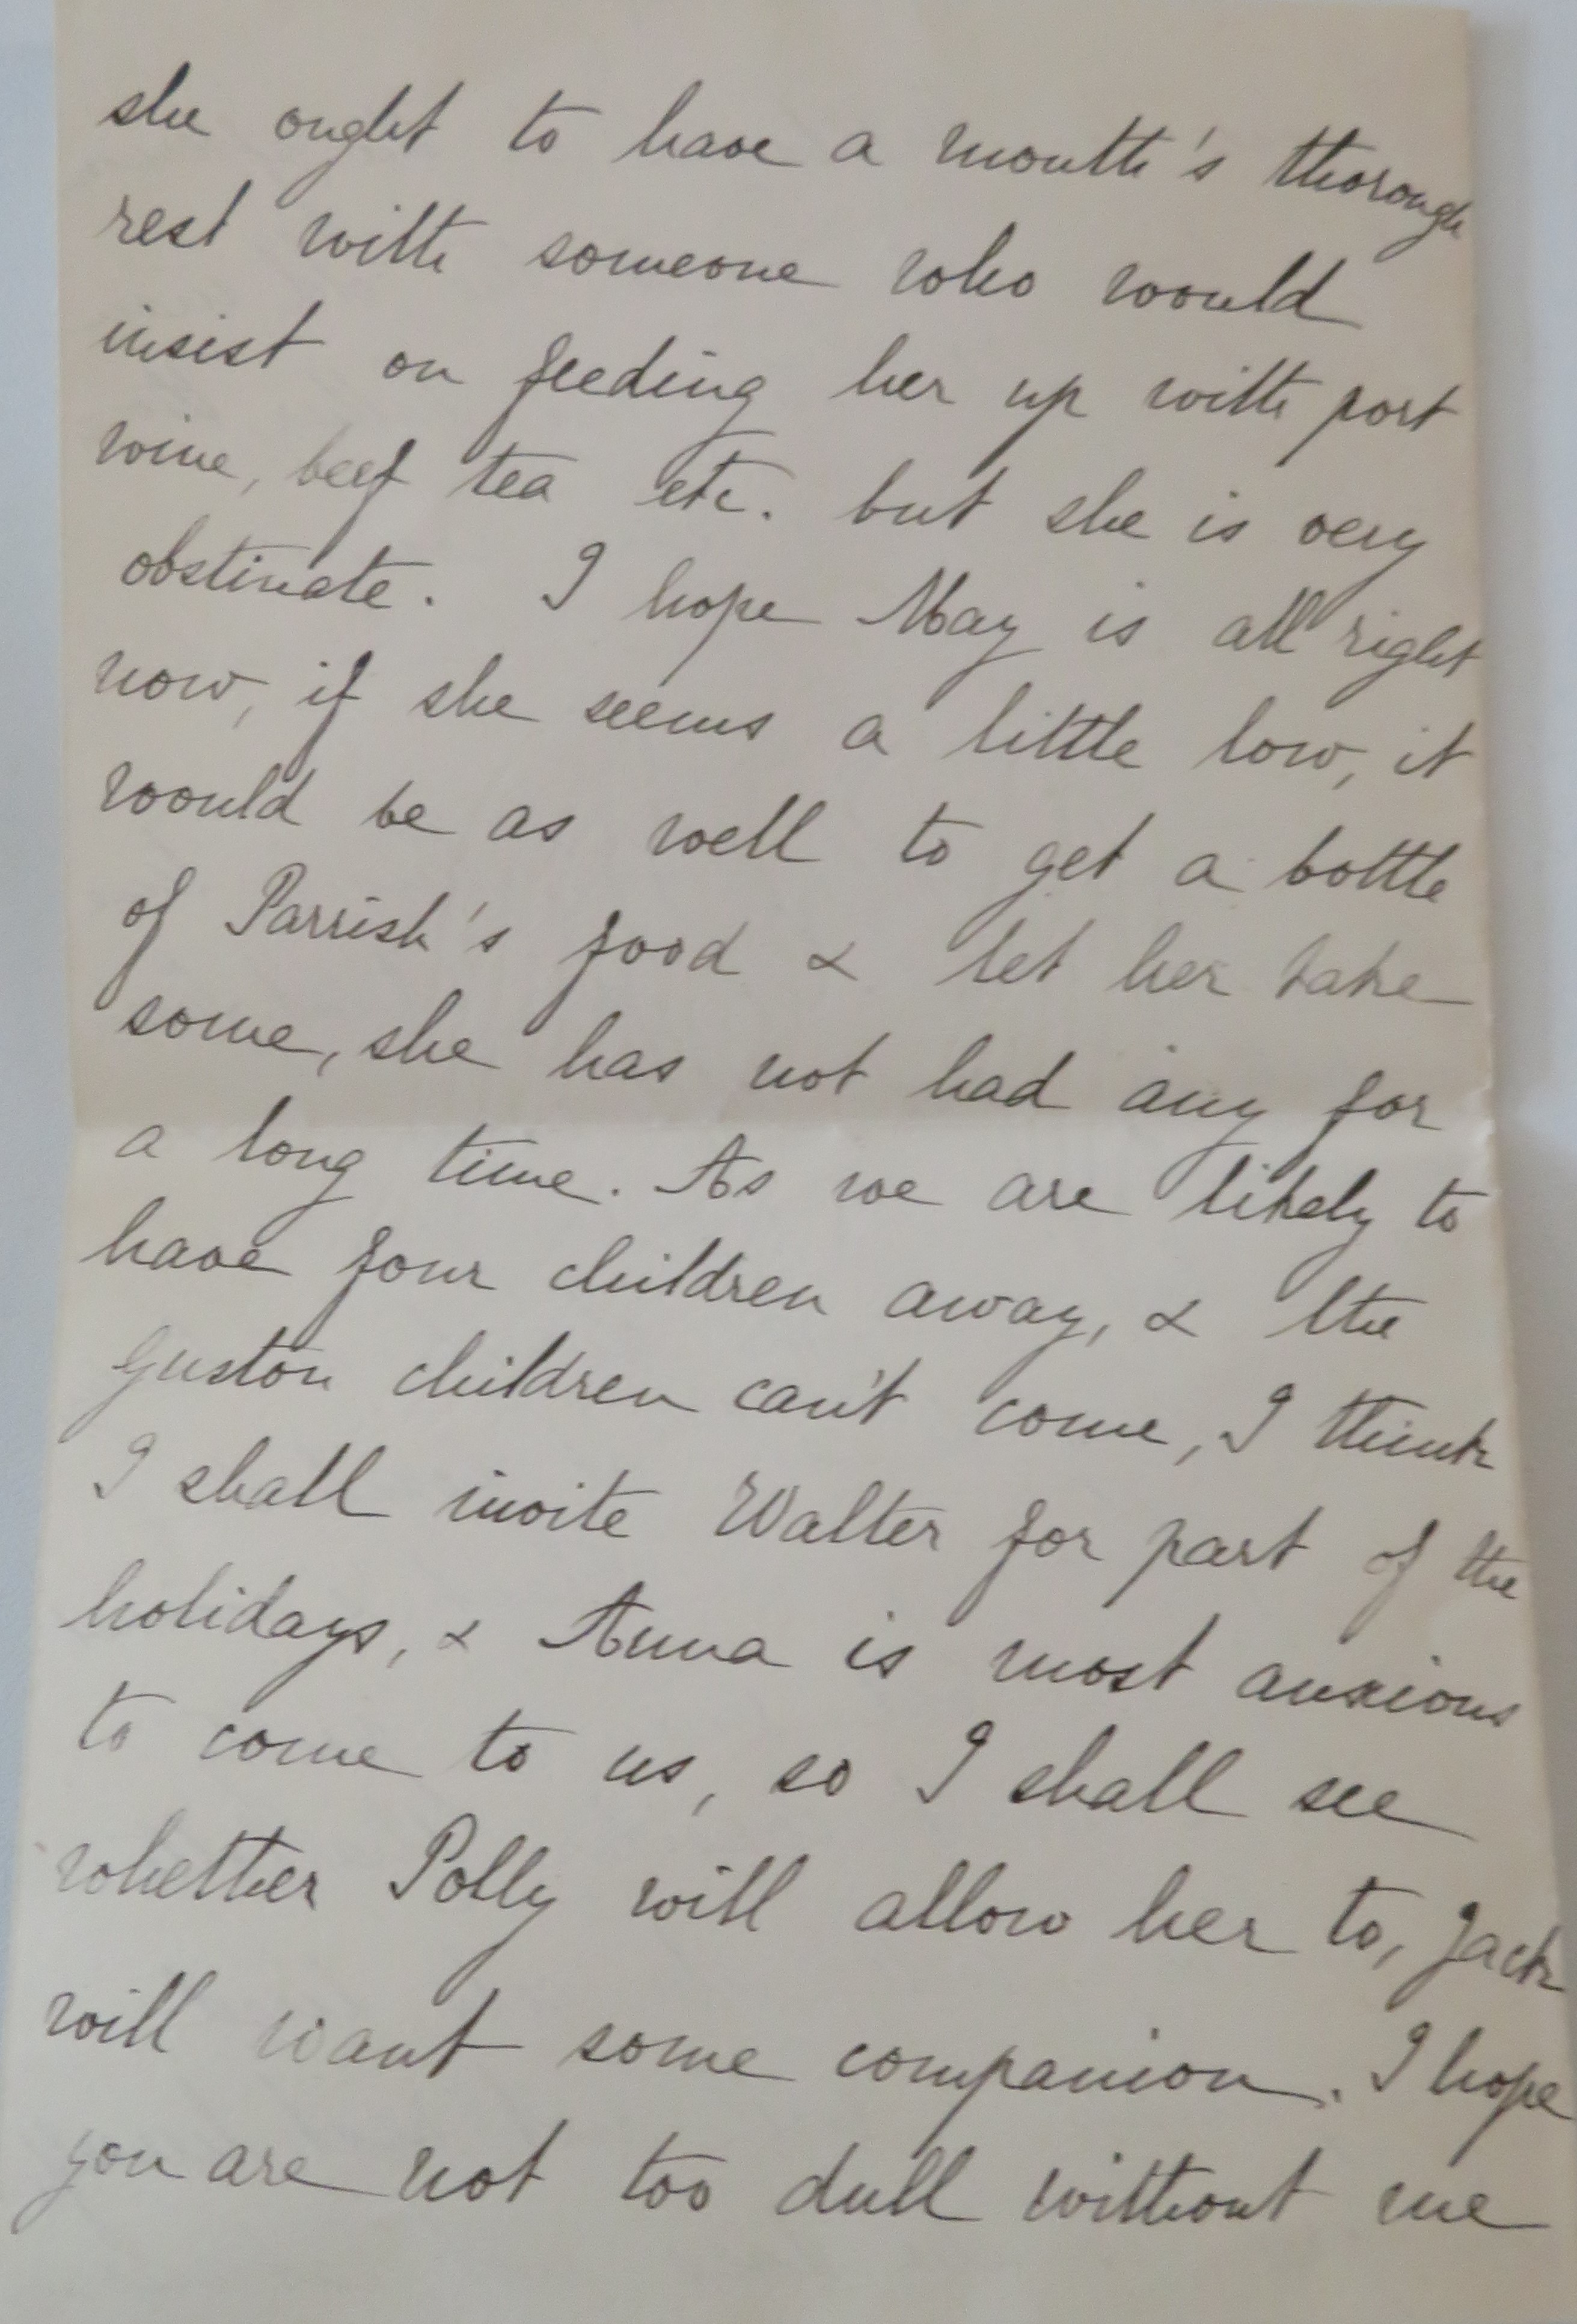 she ought to have a month's thorough
rest with someone who would
insist on feeding her up with port
wine, beef tea etc. but she is very
obstinate. I hope May is all right
now, if she seems a little low, it
would be as well to get a bottle
of Parrish's food & let her take
some, she has not had any for
a long time. As we are likely to
have four children away, & the
Guston children can't come, I think
I shall invite Walter for part of the
holidays, & Anna is most anxious
to come to us, so I shall see
whether Polly will allow her to, Jack
will want some companion. I hope
you are not too dull without me